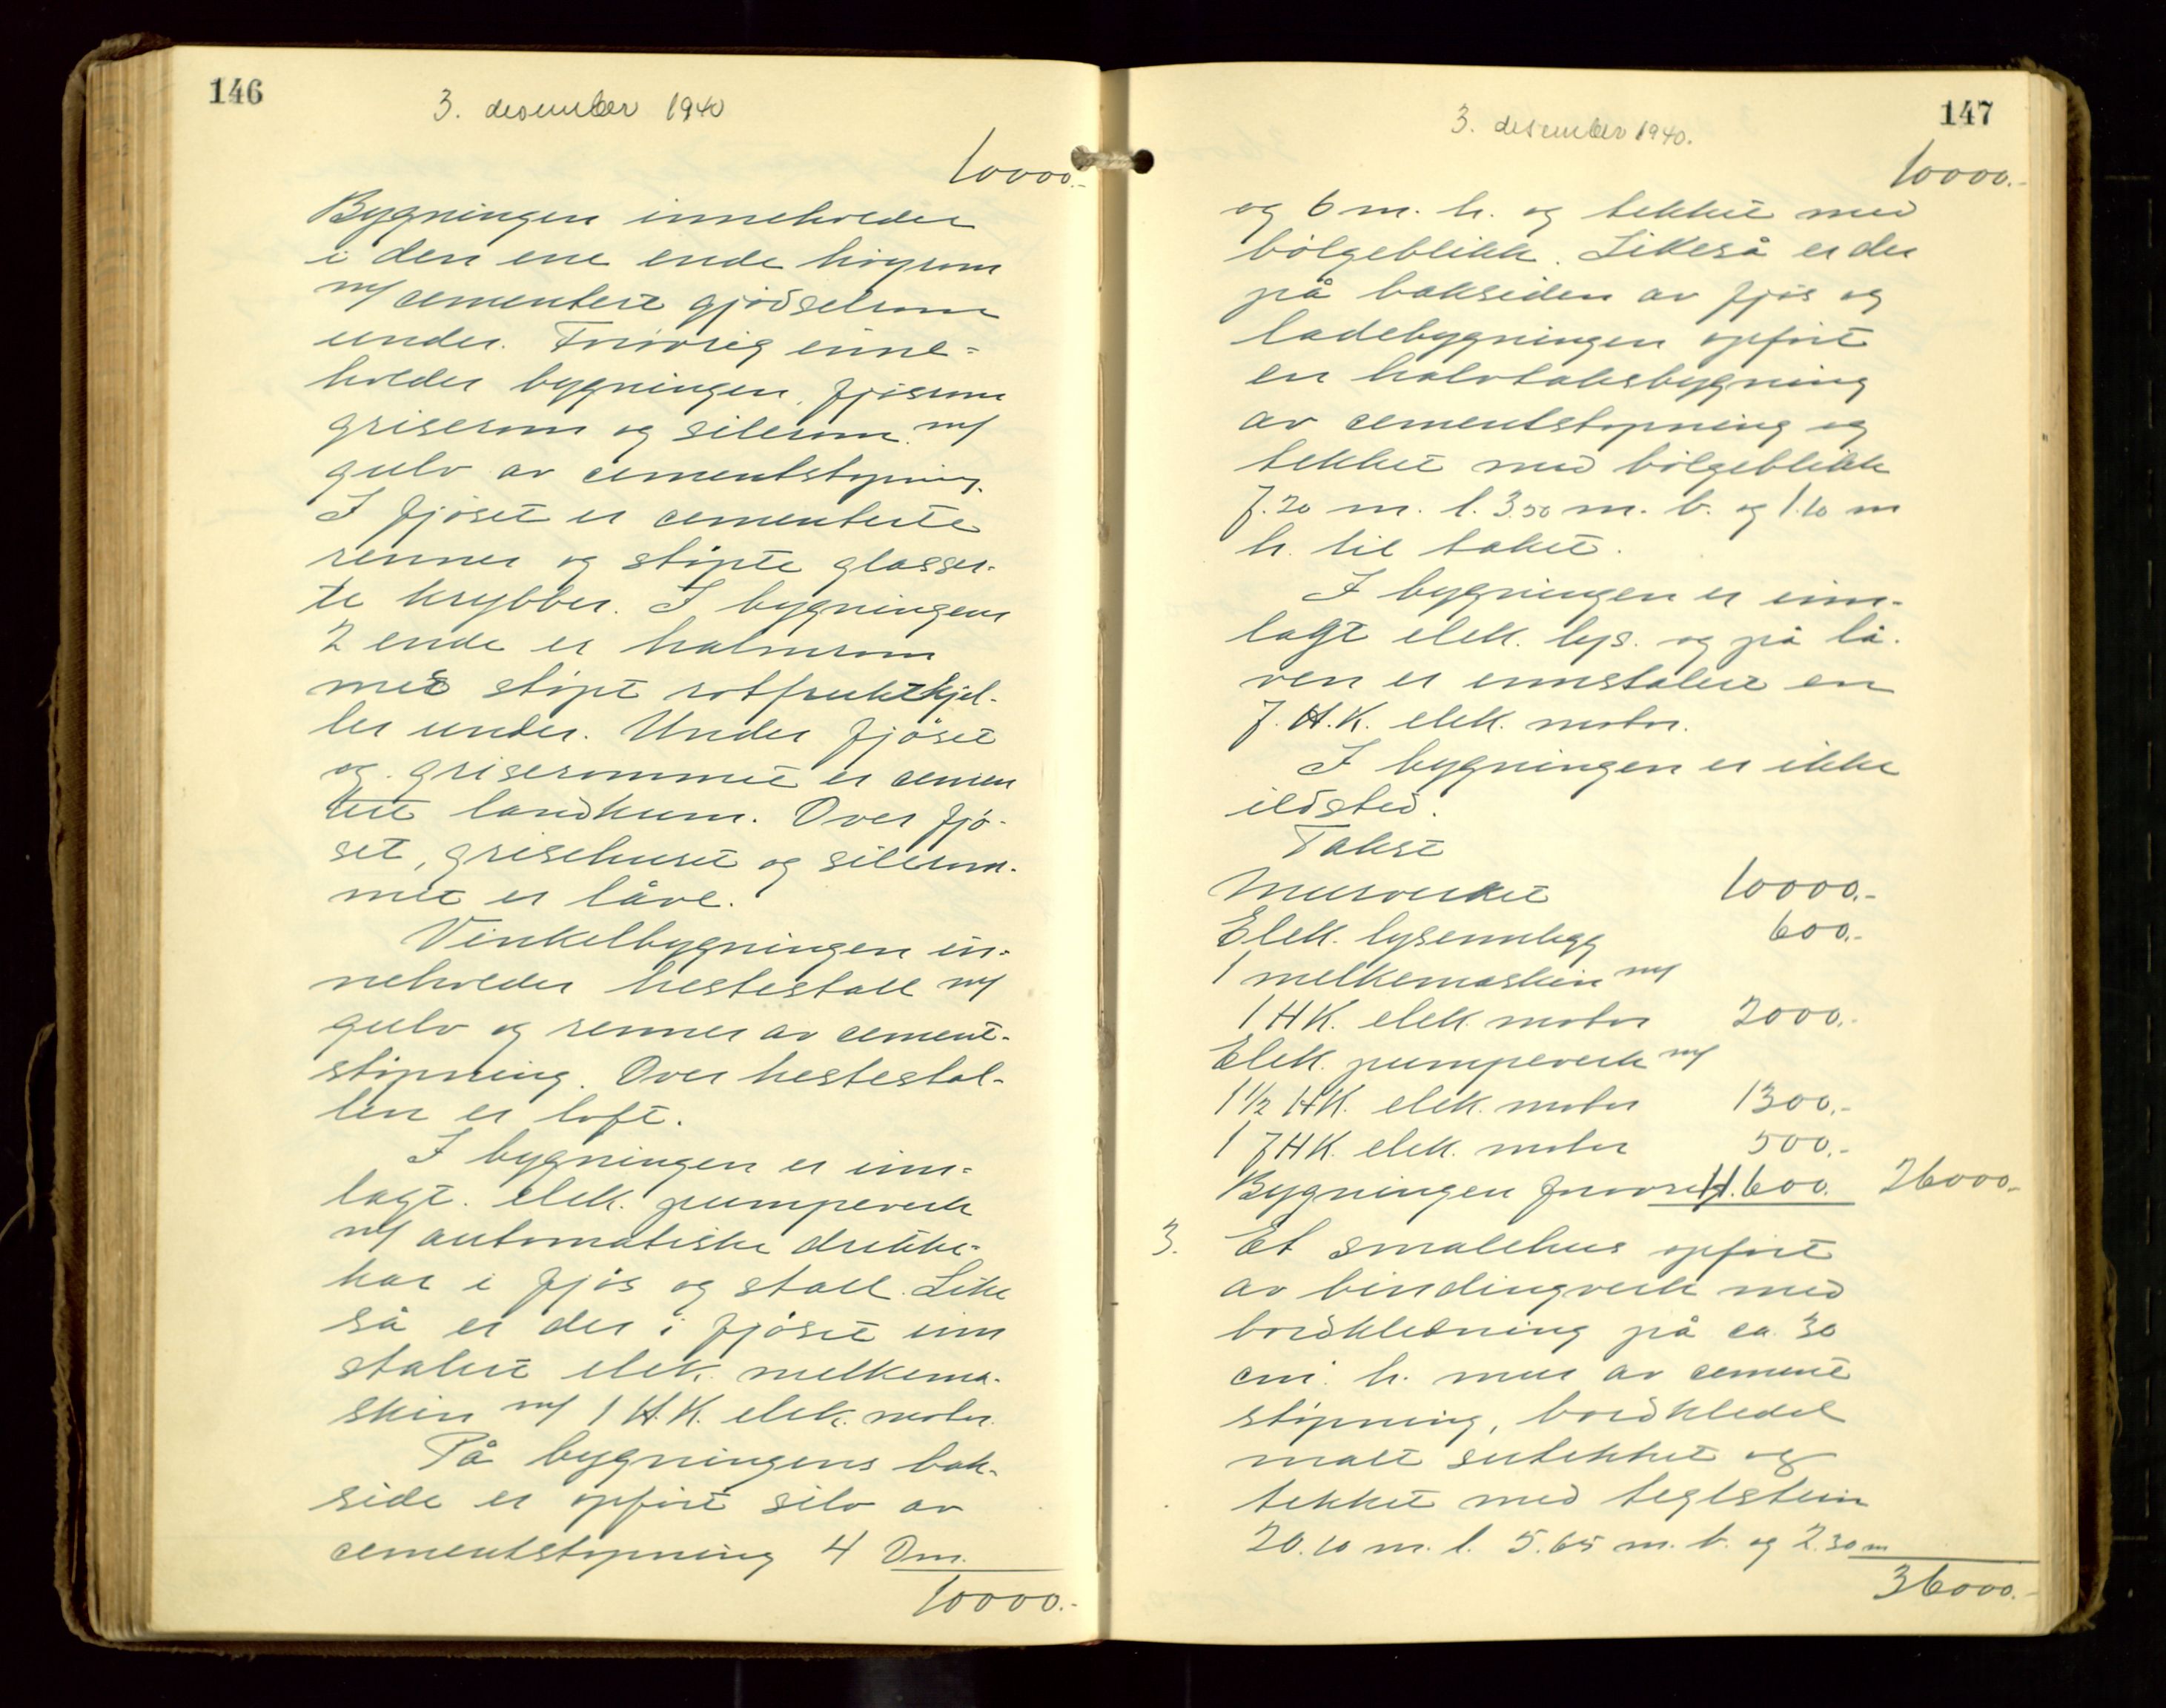 146
3. desember 1940
10000.-
Bygningen inneholder
i den ene ende höyrom
m/ cementert gjödselrom
under. Forövrig inne-
holder bygningen, fjösrom
griserom og silorom m/
gulv av cementstöpning.
I fjöset er cementerte
renner og stöpte glasser-
te krybber. I bygningens
2 ende er halmrom
med stöpt rotfruktkjel-
ler under. Under fjöset
og griserommet er cemen
tert landkum. Over fjö-
set, grisehuset og silorom-
met er låve.
Vinkelbygningen in-
neholder hestestall m/
gulv og renner av cement-
stöpning. Over hestestal-
len er loft.
I bygningen er inn-
lagt. elek. pumpeverk
m/ automatiske drikke-
kar i fjös og stall. Like
så er der i fjöset inn
stalert elek. melkema-
skin m/ 1 H.K. elek. motor.
På bygningens bak-
side er opfört silo av
cementstöpning 4 Dm.
10000.-
147
3. desember 1940.
10000.-
og 6 m. h. og tekket med
bölgeblikk. Likeså er der
på baksiden av fjös og
ladebygningen opfört
en halvtaksbygning
av cementstöpning og
tekket med bölgeblikk
7.20 m. l. 3.50 m. b. og 1.10 m
h. til taket.
I bygningen er inn-
lagt elek. lys. og på lå-
ven er innstalert en
7. H.K. elek. motor.
I bygningen er ikke
ildsted.
Takst
Murverket 10000.-
Elek. lysinnlegg 600.-
1 melkemaskin m/
1 HK. elek. motor 2000.-
Elek. pumpeverk m/
1 1/2 HK. elek. motor 1300.-
1 7 HK. elek. motor 500.-
Bygningen forövrig 11.600. 26000.-
3. Et smalehus opfört
av bindingverk med
bordkledning på ca. 30
cm. h. mur av cement
stöpning, bordkledd
malt sutekket og
tekket med teglstein
20.10 m. l. 5.65 m. b. og 2.30 m
36000.-